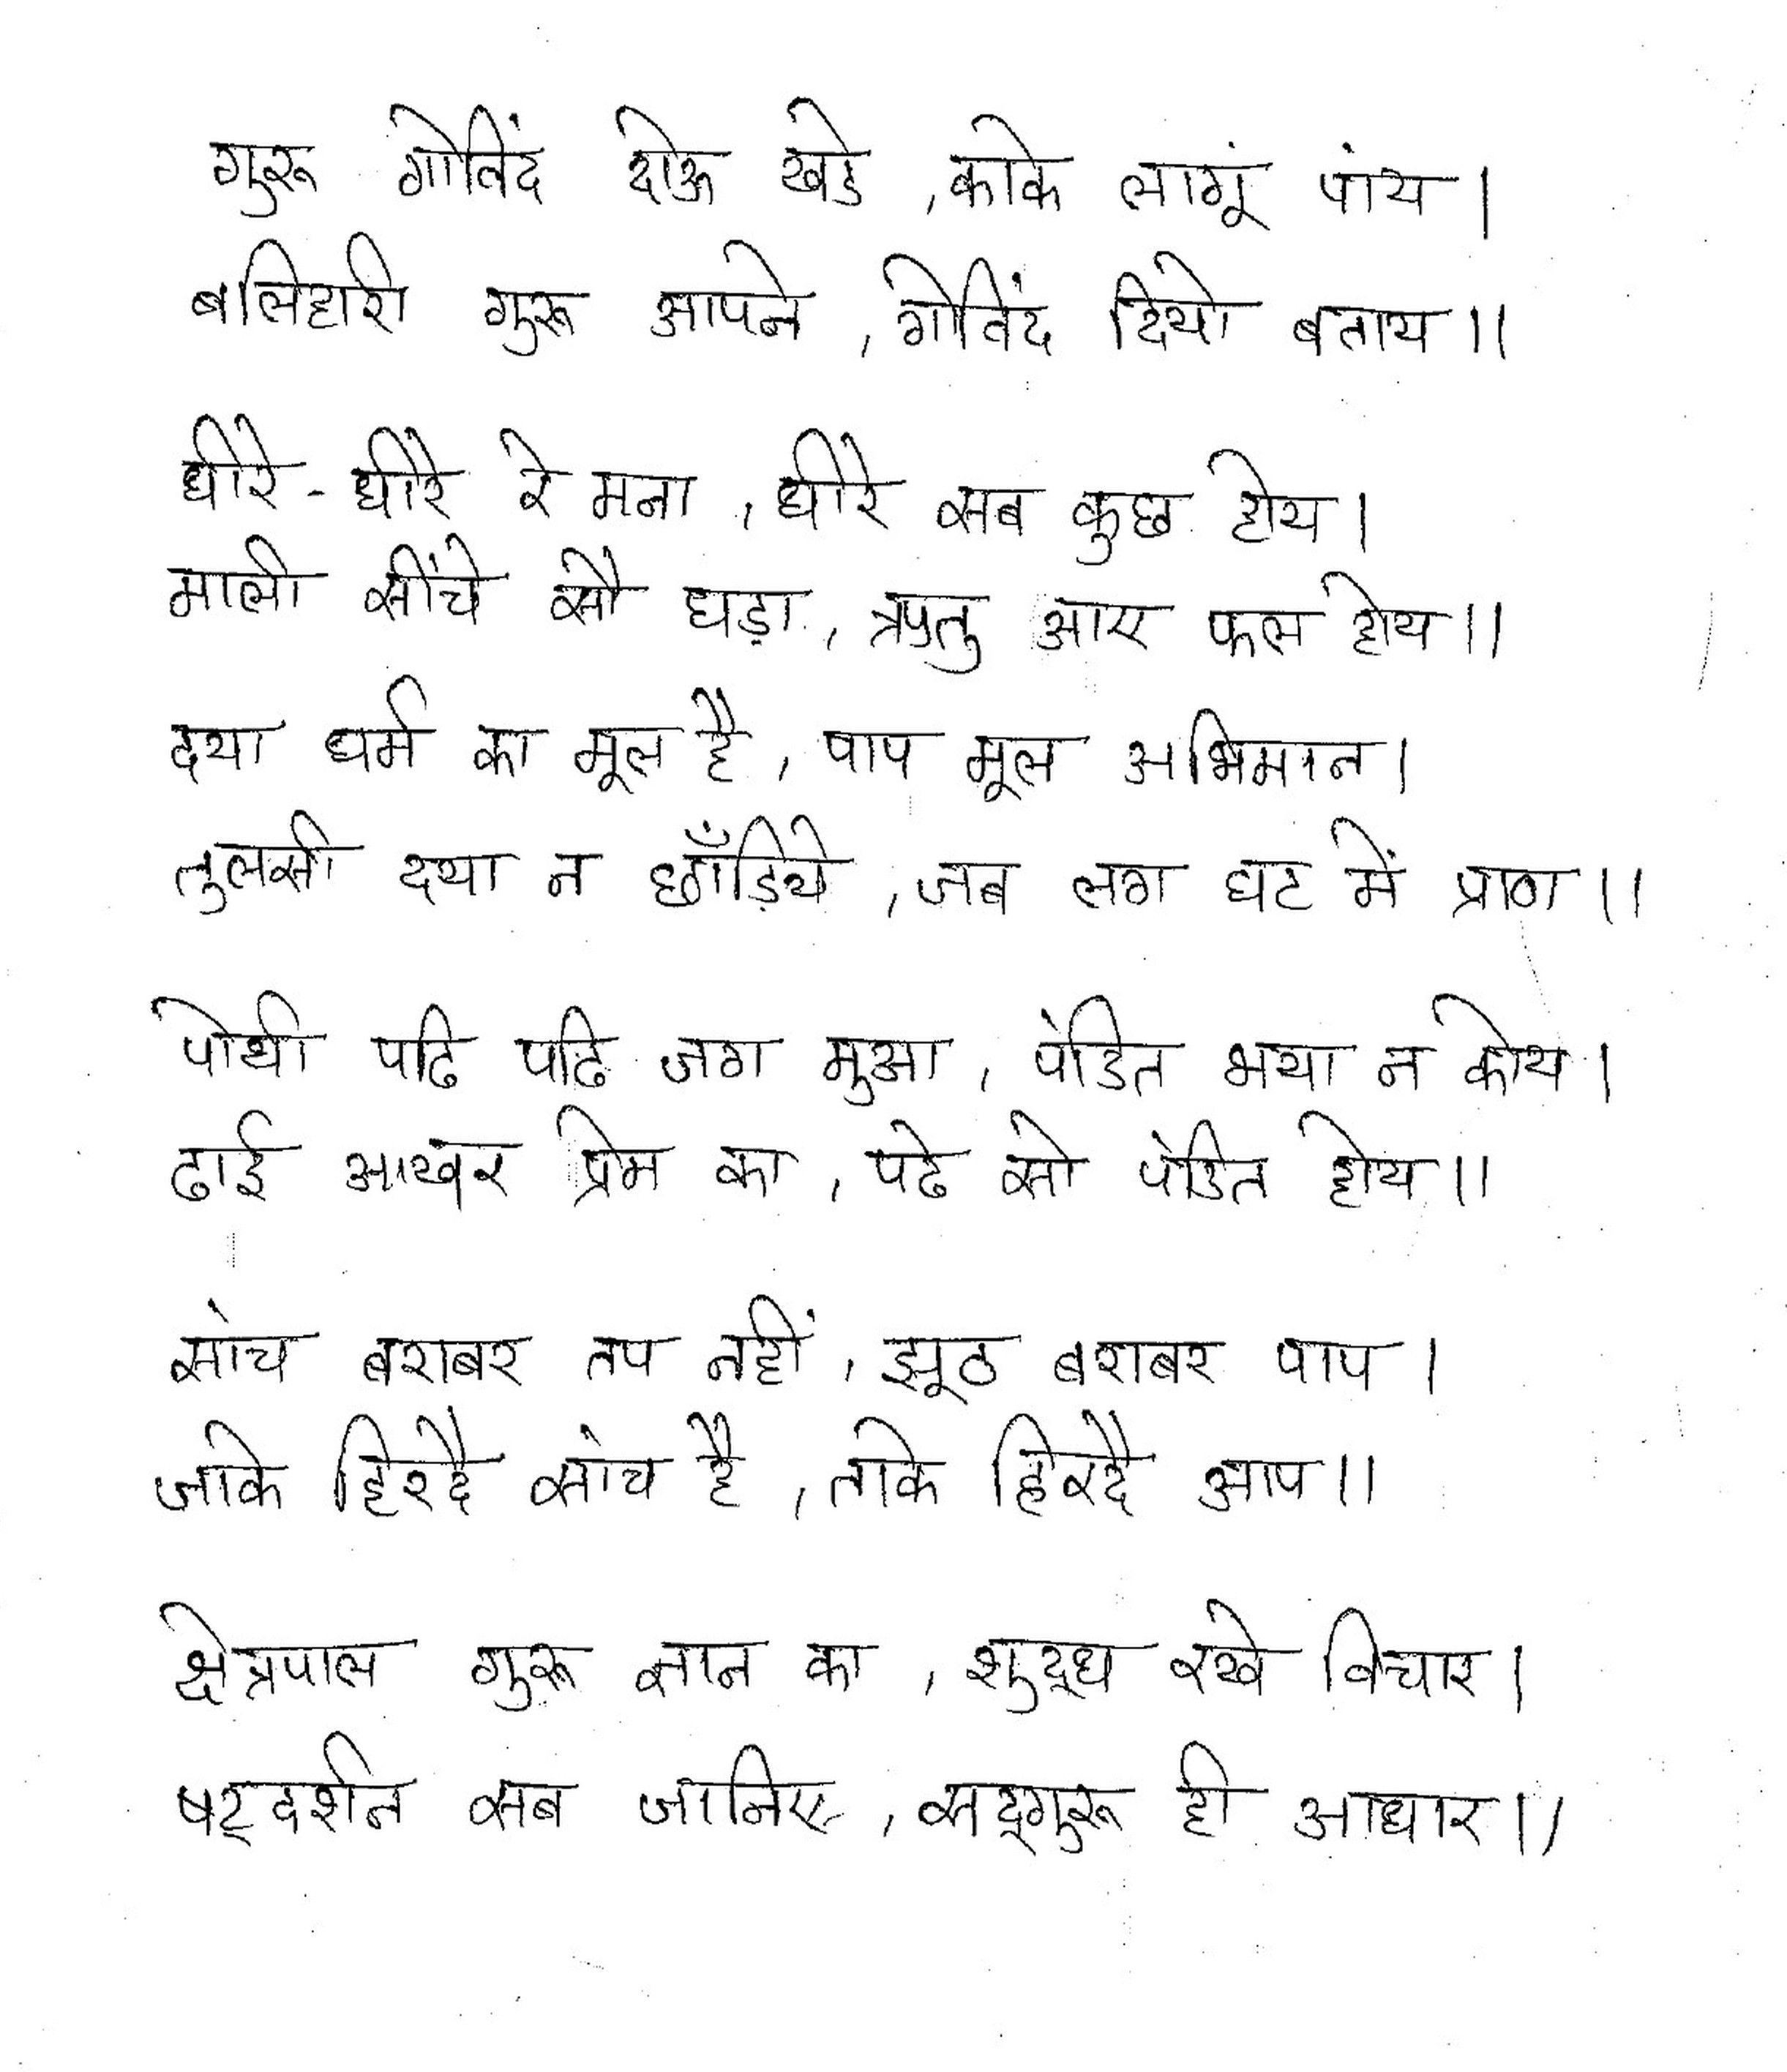 गुरू गोविंद दोऊ खडे ,काके लागूं पांय।
बलिहारी गुरू आपने ,गोविंद दियो बताय॥
धीरे-धीरे रे मना ,धीरे सब कुछ होय।
माली सींचे सौ घड़ा, ऋतु आए फल होय॥
दया धर्म का मूल है, पाप मूल अभिमान।
तुलसी दया न छाँड़िये ,जब लग घट में प्राण॥
पोथी पढि पढि जग मुआ, पंडित भया न कोय।
ढाई आखर प्रेम का, पढे सो पंडित होय॥
सांच बराबर तप नहीं, झूठ बराबर पाप।
जाके हिरदै सांच है ,ताके हिरदै आप॥
क्षेत्रपाल गुरू ज्ञान का, शुद्ध रखे विचार।
षट्दर्शन सब जानिए ,सद्गुरू ही आधार॥